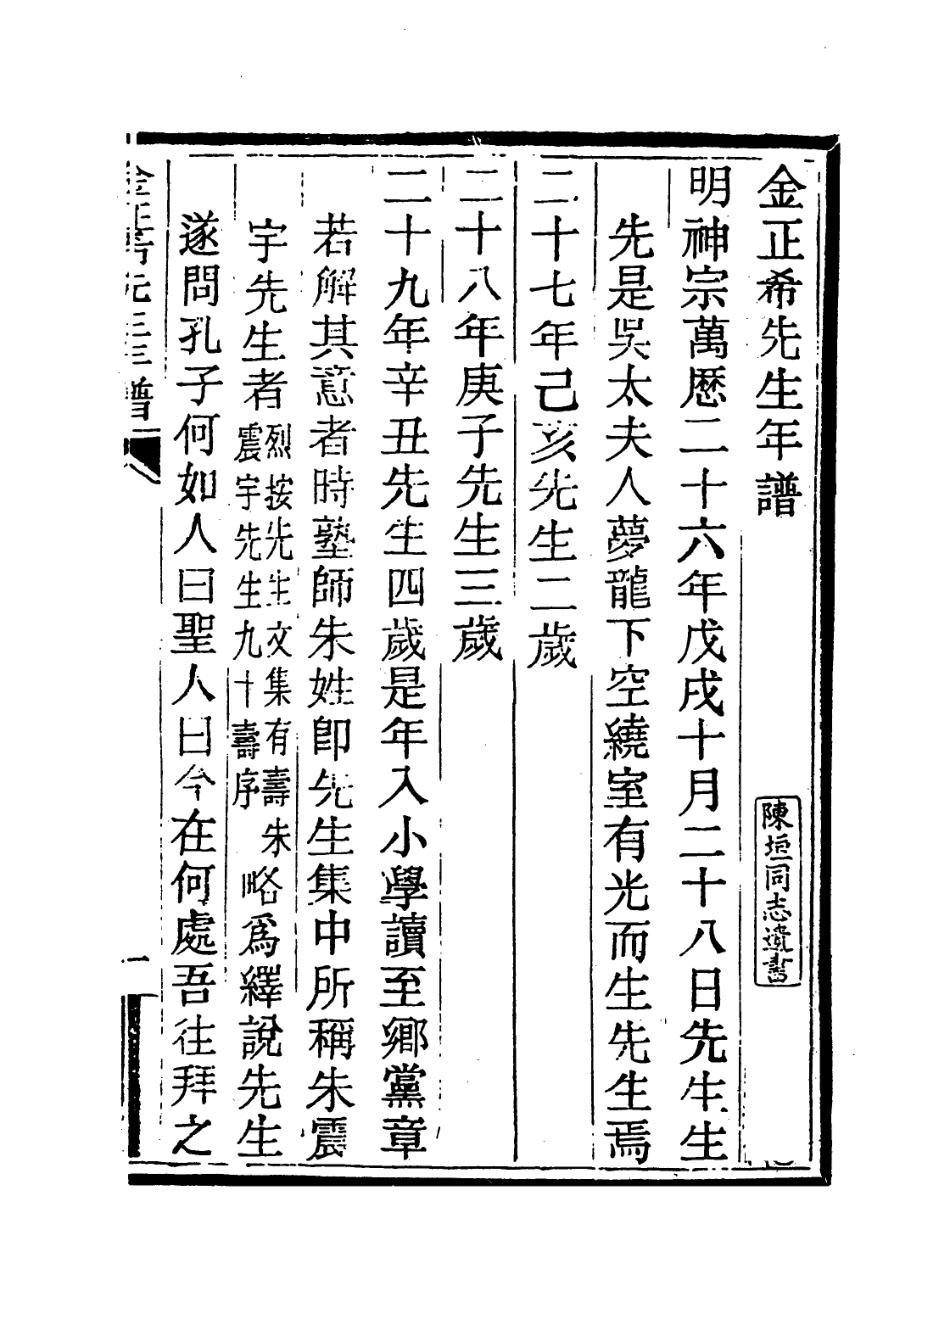 金正希先生年譜
陳垣同志遺書
明神宗萬厯二十六年戊戌十月二十八日先生生
先是吳太夫人夢龍下空繞室有光而生先生焉
二十七年己亥先生二歲
二十八年庚子先生三歲
二十九年辛丑先生四歲是年入小學讀至鄉黨章
若解其意者時塾師朱姓卽先生集中所稱朱震
宇先生者烈按先生文集有壽朱震宇先生九十壽序略爲繹說先生
遂問孔子何如人曰聖人曰今在何處吾往拜之
金正希先生年譜
一